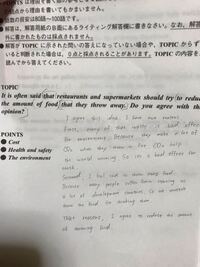 点から理由を書いてもかまいません。
語数の目安は80語〜100語です。
解答は、解答用紙のB面にあるライティング解答欄に書きなさい。なお、解答
外に書かれたものは採点されません。
解答が TOPIC に示された問いの答えになっていない場合や、TOPIC からず
と判断された場合は、0点と採点されることがあります。TOPIC の内容を
読んでから答えてください。
TOPIC
It is often said that restaurants and supermarkets should try to reduce
the amount of food that they throw away. Do you agree with this
opinion?
POINTS
Cost
Health and safety
The environment
I agree this idea. I have two reasons
First, many of food waste is bad effects
the environment. Because they make a lot of
CO2 when they burn in fire. CO2 help
the world warming. So it's a bad effect for
earth.
Second, I feel sad to throw away food.
Because many people suffer from
a lot of development countries. So we
them the food to sending them.
reasons, I agree to reduce the amount
of food.